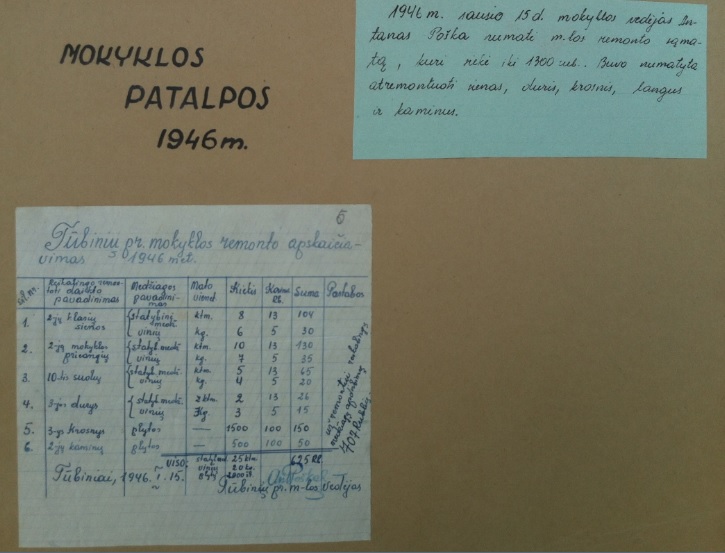 MOKYKLOS
PATALPOS
1946 m.
1946 m. sausio 15 d. mokyklos vedėjas An-
tanas Poška numatė m-los remonto sąma-
tą, kuri siekė iki 1300 rub.. Buvo numatyta
atremontuoti sienas, duris, krosnis, langus
ir kaminus.
5
Tūbinių pr. mokyklos remonto apskaičia-
vimas 1946 met.
Eil. nr. Reikalingo remon-
toti daikto pavadinimas Medžiagos pavadini-
mas Mato vienet. Kiekis Kaina Rb. Suma Pastabos
1. 2-jų klasių sienos statybinė medž. ktm. 8 13 104
vinių kg. 6 5 30
2. 2-jų mokyklos prieangių statyb. medž. ktm. 10 13 130
vinių kg. 7 5 35
3. 10-ties suolų statyb. medž. ktm. 5 13 65
vinių kg. 4 5 20
4. 3-jos durys statyb. medž. 2 ktm. 2 13 26
vinių 3 kg. 3 5 15
5. 3-jos krosnys plytos — 1500 100 150
6. 2-jų kaminų plytos — 500 100 50
VISO: 25 ktm. 625 Rb.
vinių 20 kg.
plyt. 2000
707 Rublių
Tūbiniai, 1946. 1. 15.
Tūbinių pr. m-los Vedėjas